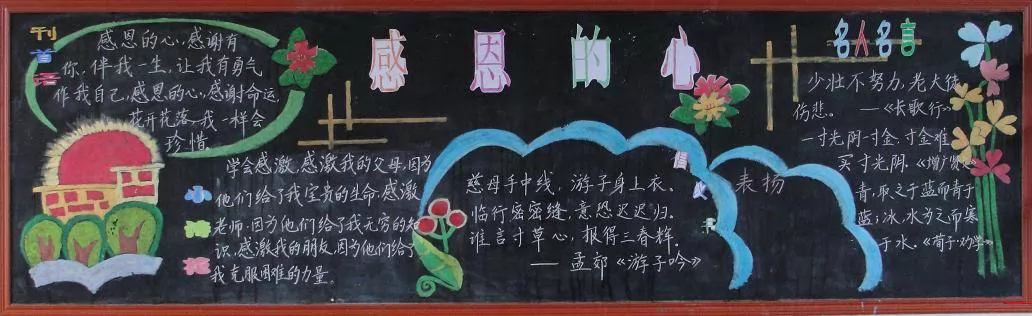 感恩的心
刊首语
感恩的心,感谢有
你,伴我一生,让我有勇气
作我自己,感恩的心,感谢命运,
花开花落,我一样会
珍惜.
学会感激,感激我的父母,因为
他们给了我宝贵的生命,感激
老师,因为他们给了我无穷的知
识,感激我的朋友,因为他们给了
我克服困难的力量.
慈母手中线,游子身上衣.
临行密密缝,意恐迟迟归.
谁言寸草心,报得三春晖.
——孟郊《游子吟》
表扬
名人名言
少壮不努力,老大徒
伤悲. ——《长歌行》
一寸光阴一寸金,寸金难
买寸光阴.《增广贤
青,取之于蓝而青于
蓝;冰,水为之而寒
于水.《荀子·劝学》